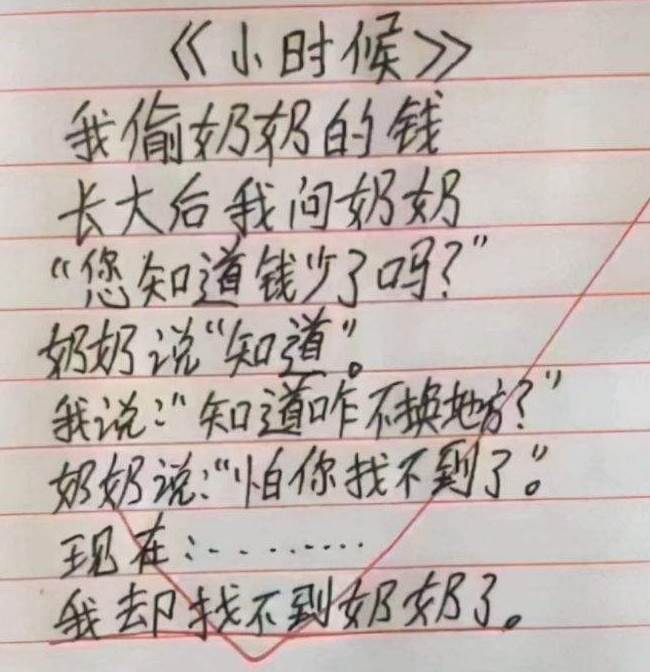 《小时候》
我偷奶奶的钱
长大后我问奶奶
“您知道钱少了吗?”
奶奶说“知道”。
我说:“知道咋不换地方?”
奶奶说:“怕你找不到了”。
现在:·········
我却找不到奶奶了。